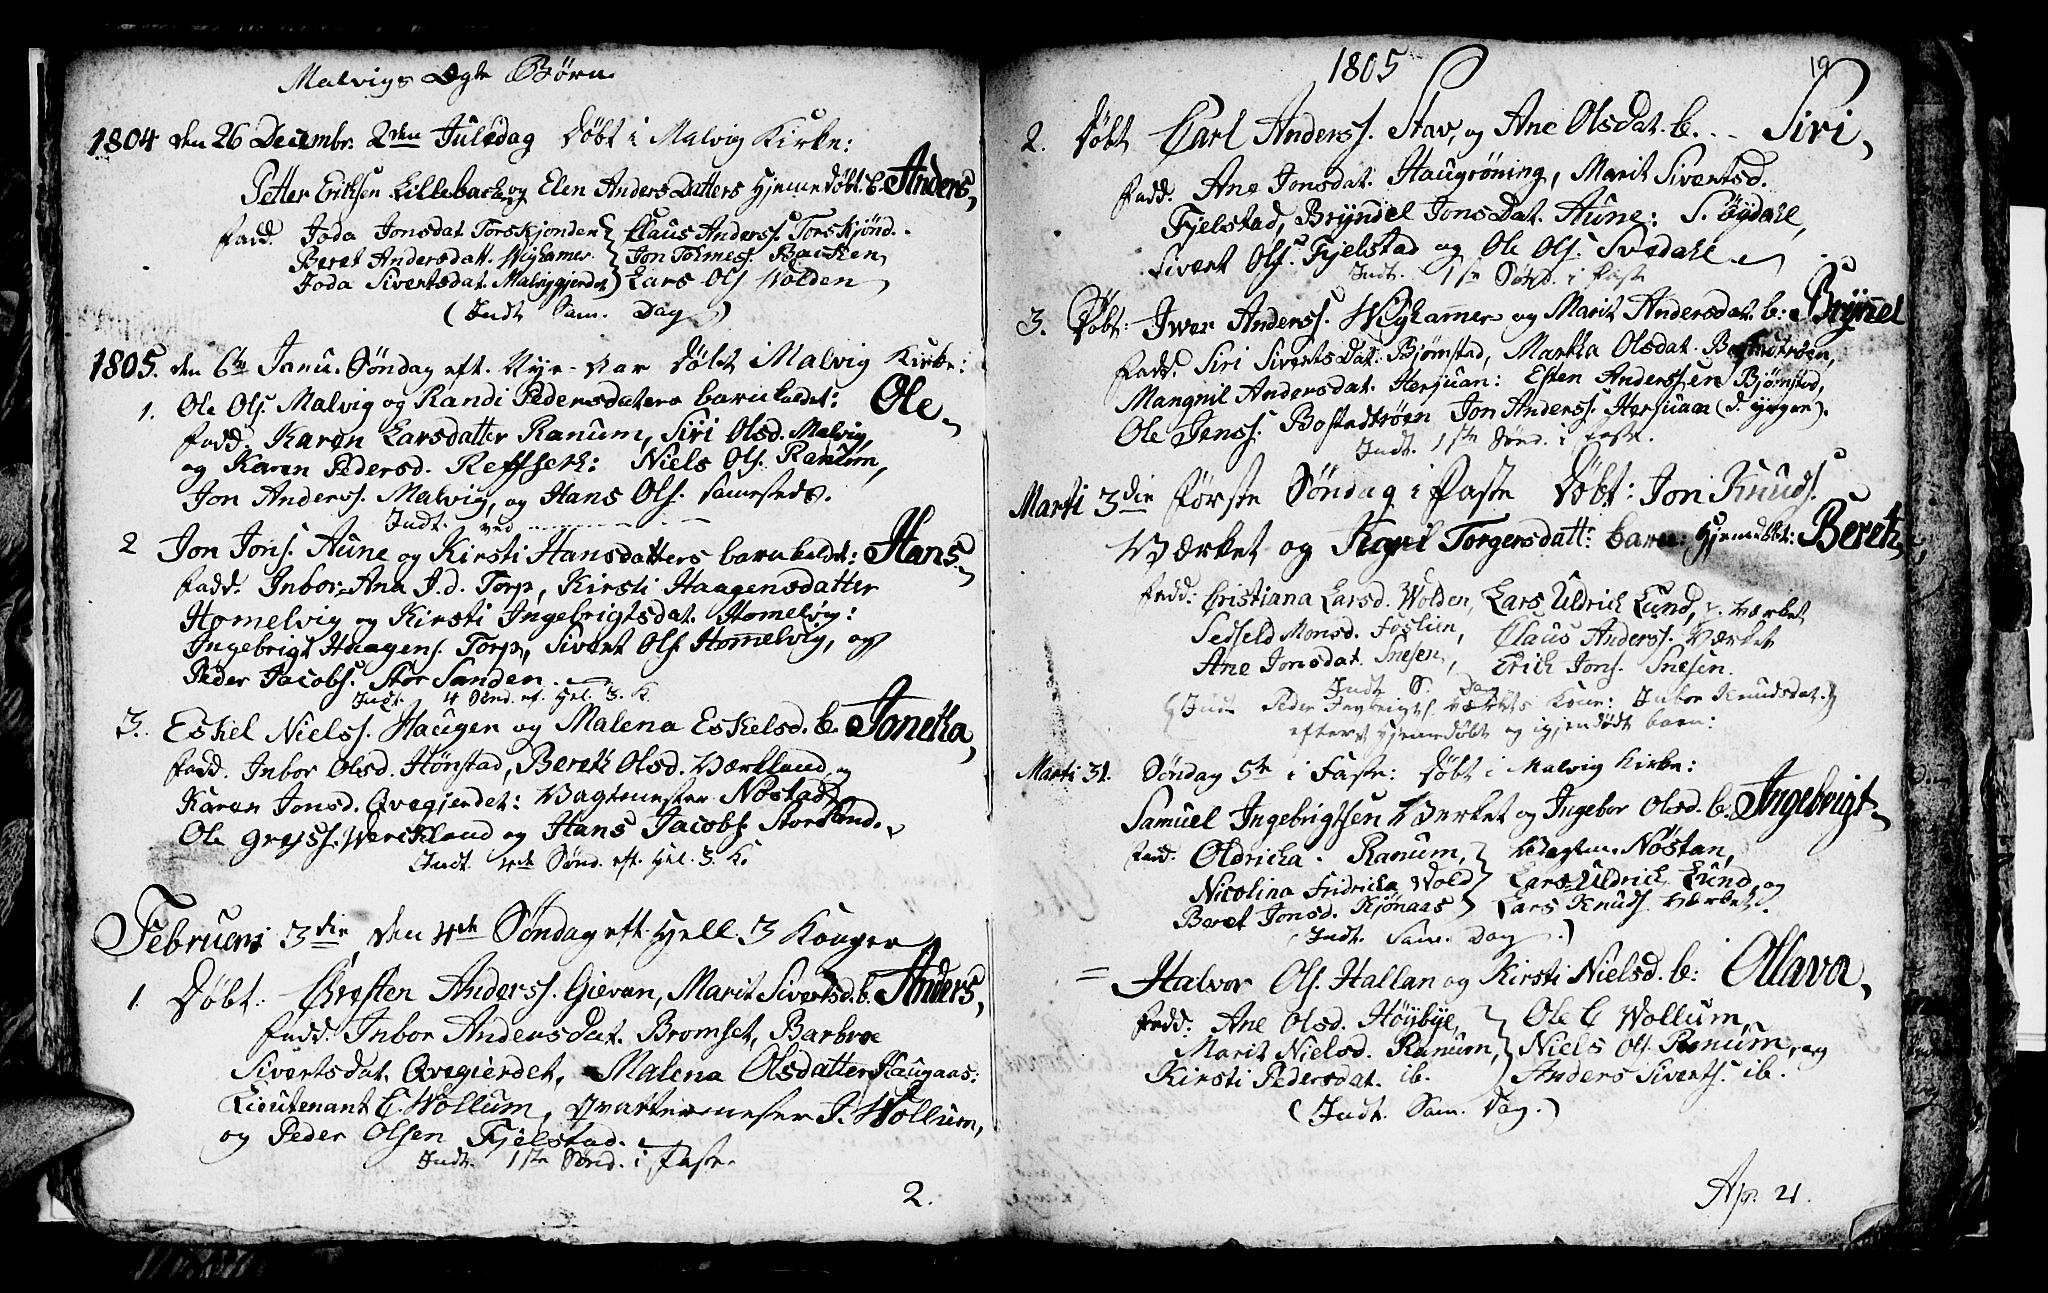 Malvigs Ægte Børn
1804 den 26 Decembr. 2den Juledag Døbt i Malvig Kirke:
Petter Eriksen Lillebach og Elen Anders Datters hjemedøbt b. Anders,
Fadd. Joda Jonsdat Torskjonden Claus Anderss. Torskjønd.
Beret Andersdatt. Wighamer Jon Tolmess. Bacchen
Joda Sivertsdat. Malviggjerdet Lars Ols Wolden
(Indt. Sam. Dag)
1805. den 6te Janu. Søndag eft. Nye-Aar Døbt i Malvig Kirke:
1. Ole Ols. Malvig og Randi Pedersdaters barn kaldet: Ole
Fadd. Karen Larsdatter Ranum, Siri Olsd. Malvig,
og Karen Pedersd. Reffseth: Niels Ols. Ranum,
Jon Anderss. Malvig, og Hans Ols. sameseds.
Indt. ved
2 Jon Jons. Aune og Kirsti Hansdatters barn kaldt: Hans
Fadd. Inbor-Ana J.d. Torp, Kirsti Haagensdatter
Homelvig og Kirsti Ingebrigtsdat. Homelvig:
Ingebrigt Haagens. Torp, Sivert Ols. Homelvig, og
Peder Jacobs. Stor Sanden.
Indt. 4 Sønd. ef. Hel. 3. K.
3. Eskel Nielss. Haugen og Malena Eskelsd. b. Jonetha,
Fadd. Inbor Olsd. Hønstad, Bereth Olsd. Værkland og
Karen Jonsd. Qvegjerdet: Vagtmester Nøstad,
Ole Greiss. Werckland og Hans Jacobs. Storsand.
Indt. 4de Sønd. eft. Hel. 3. K.
Februerii 3die den 4de Søndag eft. Hell. 3 Konger
1. Døbt: Øresten Anderss. Gievan, Marit Sivertsd. b. Anders,
Fadd. Inbor Andersdat. Bromset, Barbroe
Sivertsdat. Qvegierdet, Malena Olsdatter Haugaas:
Lieutenant C. Wollum, Qvartermester J. Wollum,
og Peder Olsen Fjelstad.
Indt. 1ste Sønd. i Faste.
2.
1805
19
2. Døbt Carl Anderss. Stav, og Ane Olsdat. b. Siri,
Fadd. Ane Jonsdat. Haugrøning, Marit Sivertsd.
Fjelstad, Bryndel Jonsdat. Aune: S. Øydahl,
Sivert Ols. Fjelstad og Ole Ols. Svedahl
Indt. 1ste Sønd. i Faste
3. Døbt: Iwer Anderss. Wighamer og Marit Andersdat. b: Brynel
Fadd. Siri Sivertsdat. Bjørnstad, Martha Olsdat. Bostadtrøen,
Mangnil Andersdat. Herjuan: Esten Anderssen Bjørnstad,
Ole Jenss. Bostadtrøen Jon Anderss. Herjuan (d. yngre).
Indt. 1ste Sønd. i Faste.
Marti 3die første Søndag i Faste Døbt: Jon Knuds.
Værket og Kari Torgersdatt: barn: hjemedøbt: Bereth,
Fadd: Cristiana Larsd. Wolden, Lars Uldrich Lund, p. Værket
Sedseld Monsd. Foslien, Claus Anderss. Værket
Ane Jonsdat. Snesen, Erich Jons. Snesen.
Indt. S. Dag
(Indt. Peder Ingbrigts. Værkets Kone: Inbor Knudsdat.)
efter hjemedøbt og igjendødt barn:
Marti 31. Søndag 5te i Faste: Døbt i Malvig Kirke:
Samuel Ingebrigtsen Værket og Ingebor Olsd. b. Ingebrigt
Fadd. Oldricka Ranum, Vagtm. Nøstan,
Nicolina Fridricka Wold Lars Uldrich Lund, og
Beret Jonsd. Kjønaas Lars Knuds. Værket.
(Indt. Sam. Dag.)
= Halvor Ols. Hallan og Kirsti Nielsd. b: Ollava,
Fadd: Ane Olsd. Høybye, Ole C Wollum,
Marit Nielsd. Ranum, Niels Ols. Ranum, og
Kirsti Pedersdat. ib. Anders Siverts. ib.
(Indt. Sam. Dag.)
Ap. 21.